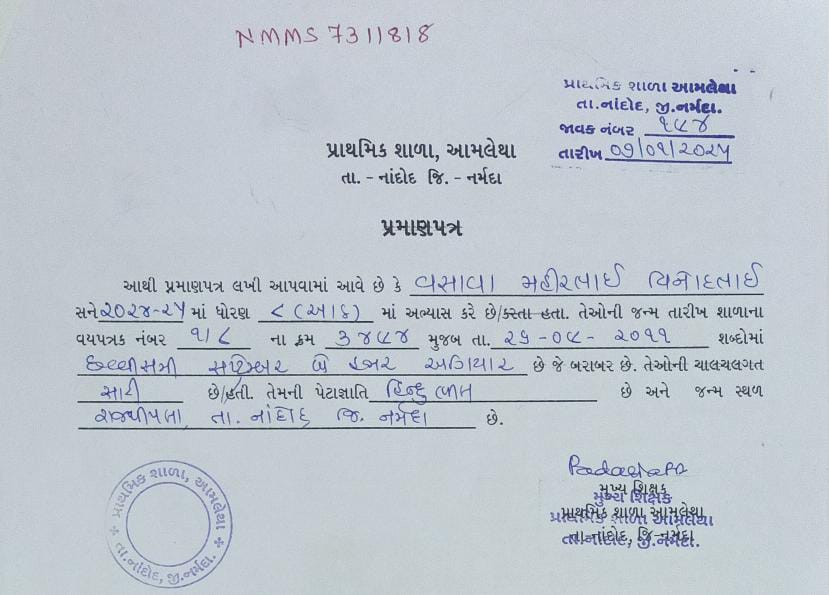 NMMS 7311818
પ્રાથમિક શાળા આમલેથા
તા.નાંદોદ, જી.નર્મદા.
જાવક નંબર ૧૯૪
તારીખ ૦૭/૦૧/૨૦૨૫
પ્રાથમિક શાળા, આમલેથા
તા. - નાંદોદ જિ. - નર્મદા
પ્રમાણપત્ર
આથી પ્રમાણપત્ર લખી આપવામાં આવે છે કે વસાવા મહીરભાઈ વિનોદભાઈ
સને ૨૦૨૪-૨૫ માં ધોરણ ૮ (આઠ) માં અભ્યાસ કરે છે/કરતા હતા. તેઓની જન્મ તારીખ શાળાના
વયપત્રક નંબર ૧/૮ ના ક્રમ ૩૪૯૪ મુજબ તા. ૨૬-૦૯-૨૦૧૧ શબ્દોમાં
છવ્વીસમી સપ્ટેમ્બર બે હજાર અગિયાર છે જે બરાબર છે. તેઓની ચાલચલગત
સારી છે/હતી. તેમની પેટાજ્ઞાતિ હિન્દુ ભીલ છે અને જન્મ સ્થળ
રાજપીપલા, તા. નાંદોદ જિ. નર્મદા છે.
મુખ્ય શિક્ષક
મુખ્ય શિક્ષક
પ્રાથમિક શાળા, આમલેથા
પ્રાથમિક શાળા આમલેથા
તા-નાંદોદ, જિ-નર્મદા
તા.નાંદોદ, જી.નર્મદા.
પ્રાથમિક શાળા, આમલેથા
તા.નાંદોદ, જી.નર્મદા.